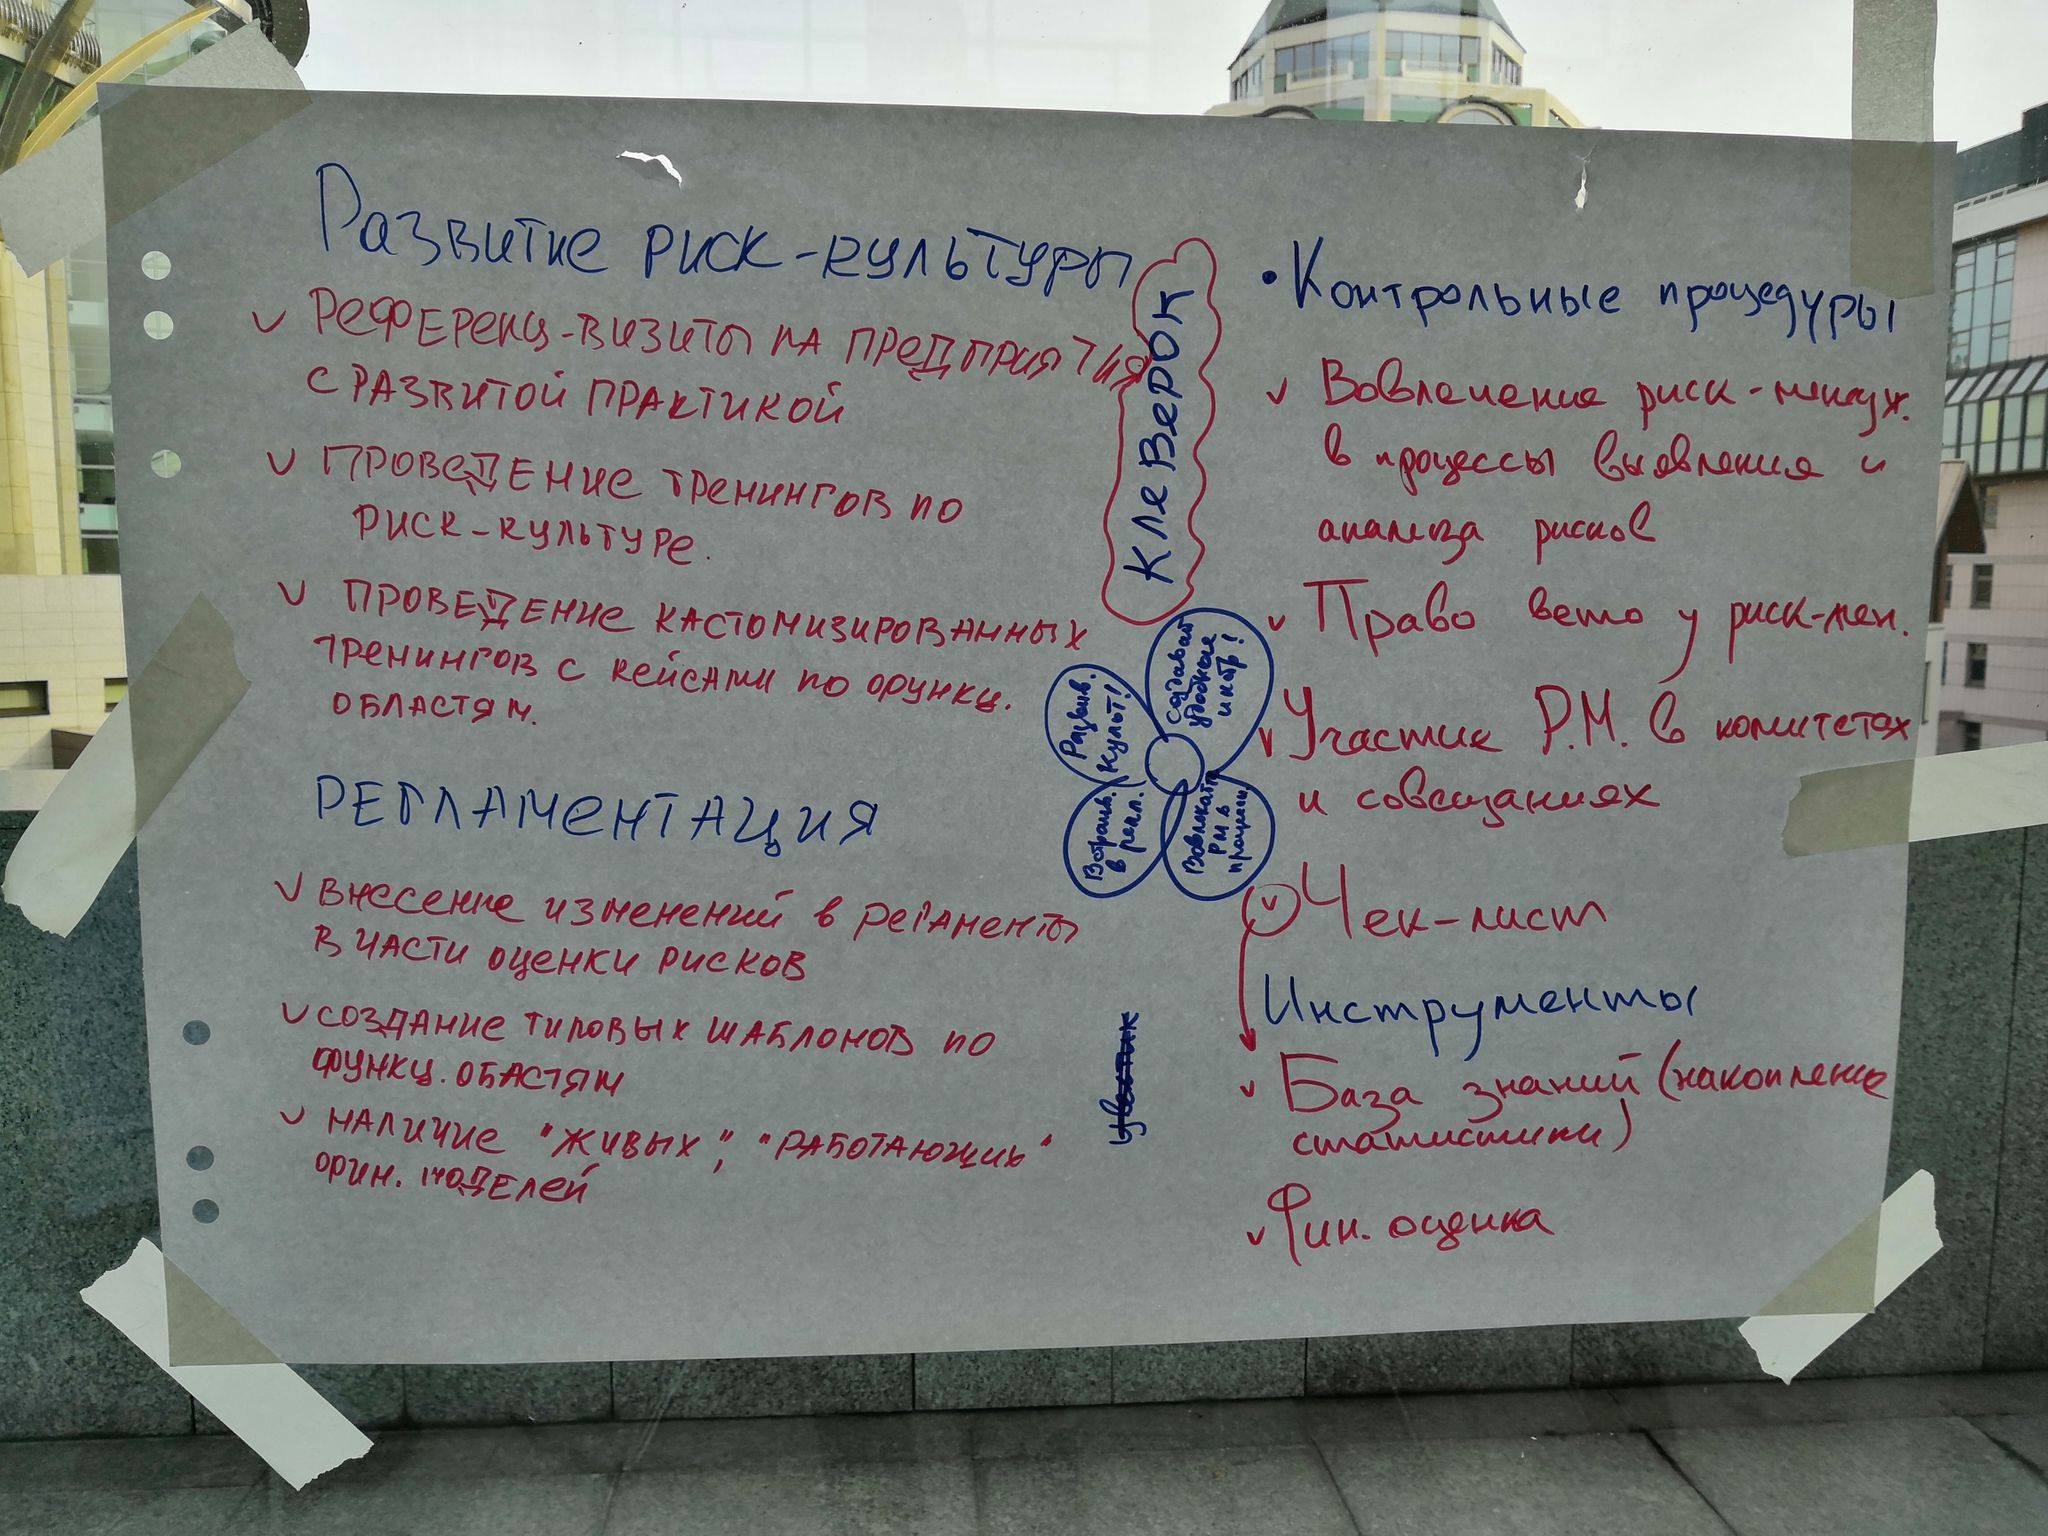 Развитие риск-культуры
РЕФЕРЕНЦ-ВИЗИТЫ НА ПРЕДПРИЯТИЯ
С РАЗВИТОЙ ПРАКТИКОЙ
ПРОВЕДЕНИЕ ТРЕНИНГОВ ПО
РИСК-КУЛЬТУРЕ.
ПРОВЕДЕНИЕ КАСТОМИЗИРОВАННЫХ
ТРЕНИНГОВ С КЕЙСАМИ ПО ФУНКЦ.
ОБЛАСТЯМ.
РЕГЛАМЕНТАЦИЯ
ВНЕСЕНИЕ ИЗМЕНЕНИЙ В РЕГАМЕНТЫ
В ЧАСТИ ОЦЕНКИ РИСКОВ
СОЗДАНИЕ ТИПОВЫХ ШАБЛОНОВ ПО
ФУНКЦ. ОБАСТЯМ
НАЛИЧИЕ "ЖИВЫХ", "РАБОТАЮЩИХ"
ФИН. МОДЕЛЕЙ
КлеВерок
Развив.
культ!
Создавай
удобные
инстр!
Встраив.
в регл.
Вовлекать
РМ в
процессы
цветик
• Контрольные процедуры
Вовлечение риск-менедж.
в процессы выявления и
анализа рисков
Право вето у риск-мен.
Участие Р.М. в комитетах
и совещаниях
Чек-лист
Инструменты
База знаний (накопление
статистики)
Фин. оценка